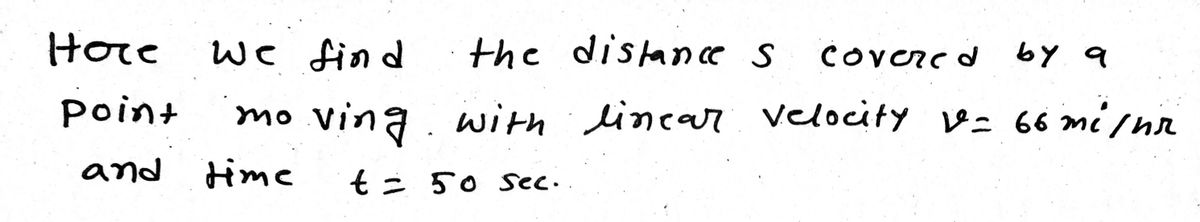 Here we find the distance s covered by a
point moving with linear velocity v = 66 mi/hr
and time t = 50 sec.